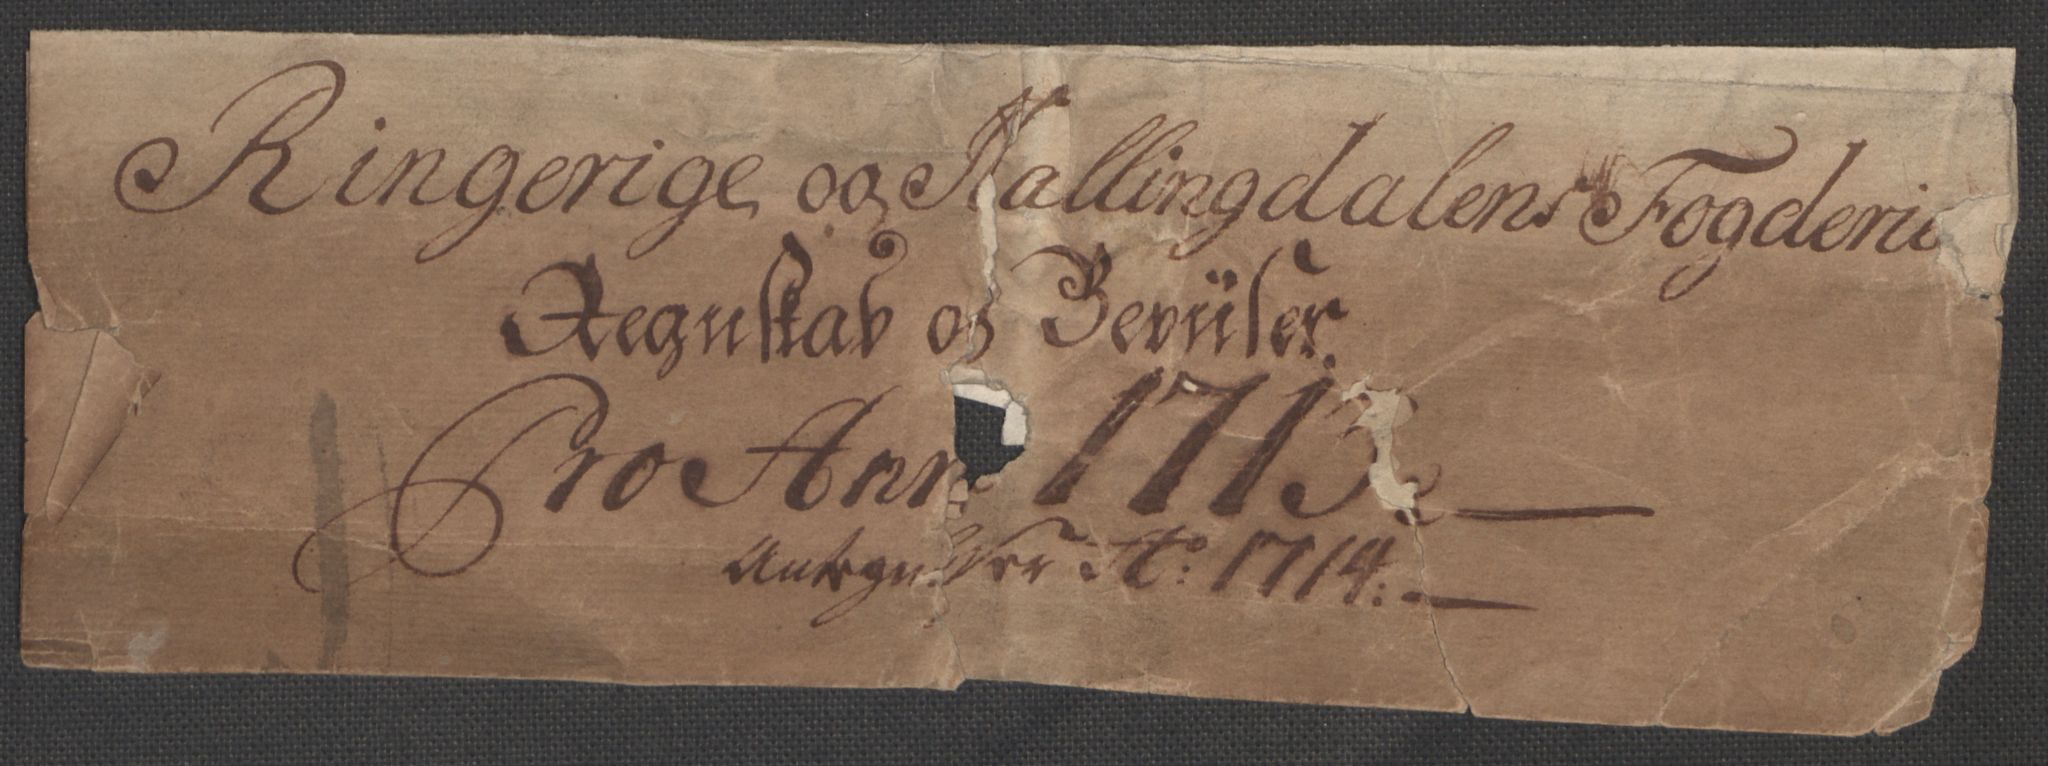 Ringerige og Hallingdalens Fogderie
Regnskab og Beviiser
Pro Anno 1713
Antegnelser 1714.